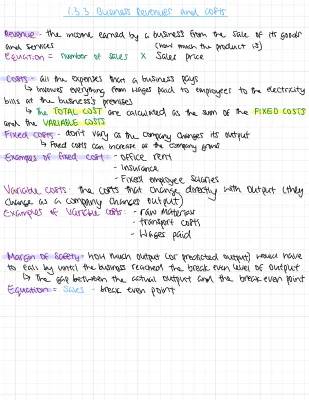 1.3.3 Business Revenues and Costs
Revenue - the income earned by a business from the sale of its goods
and services (how much the product is)
Equation = number of sales X Sales price
Costs - all the expenses that a business pays
↳ Involves everything from wages paid to employees to the electricity
bills at the business's premises
↳ the TOTAL COST are calculated as the sum of the FIXED COSTS
and the VARIABLE COSTS
Fixed costs - don't vary as the company changes its output
↳ Fixed costs can increase as the company grows
Examples of Fixed cost - office rent
- Insurance
- Fixed employee salaries
Variable costs - the costs that change directly with output (they
change as a company changes output)
Examples of Variable costs - raw materials
- transport costs
- Wages paid
Margin of Safety - how much output (or predicted output) would have
to fall by until the business reached the break even level of output
↳ The gap between the actual output and the break even point
Equation = Sales - break even point